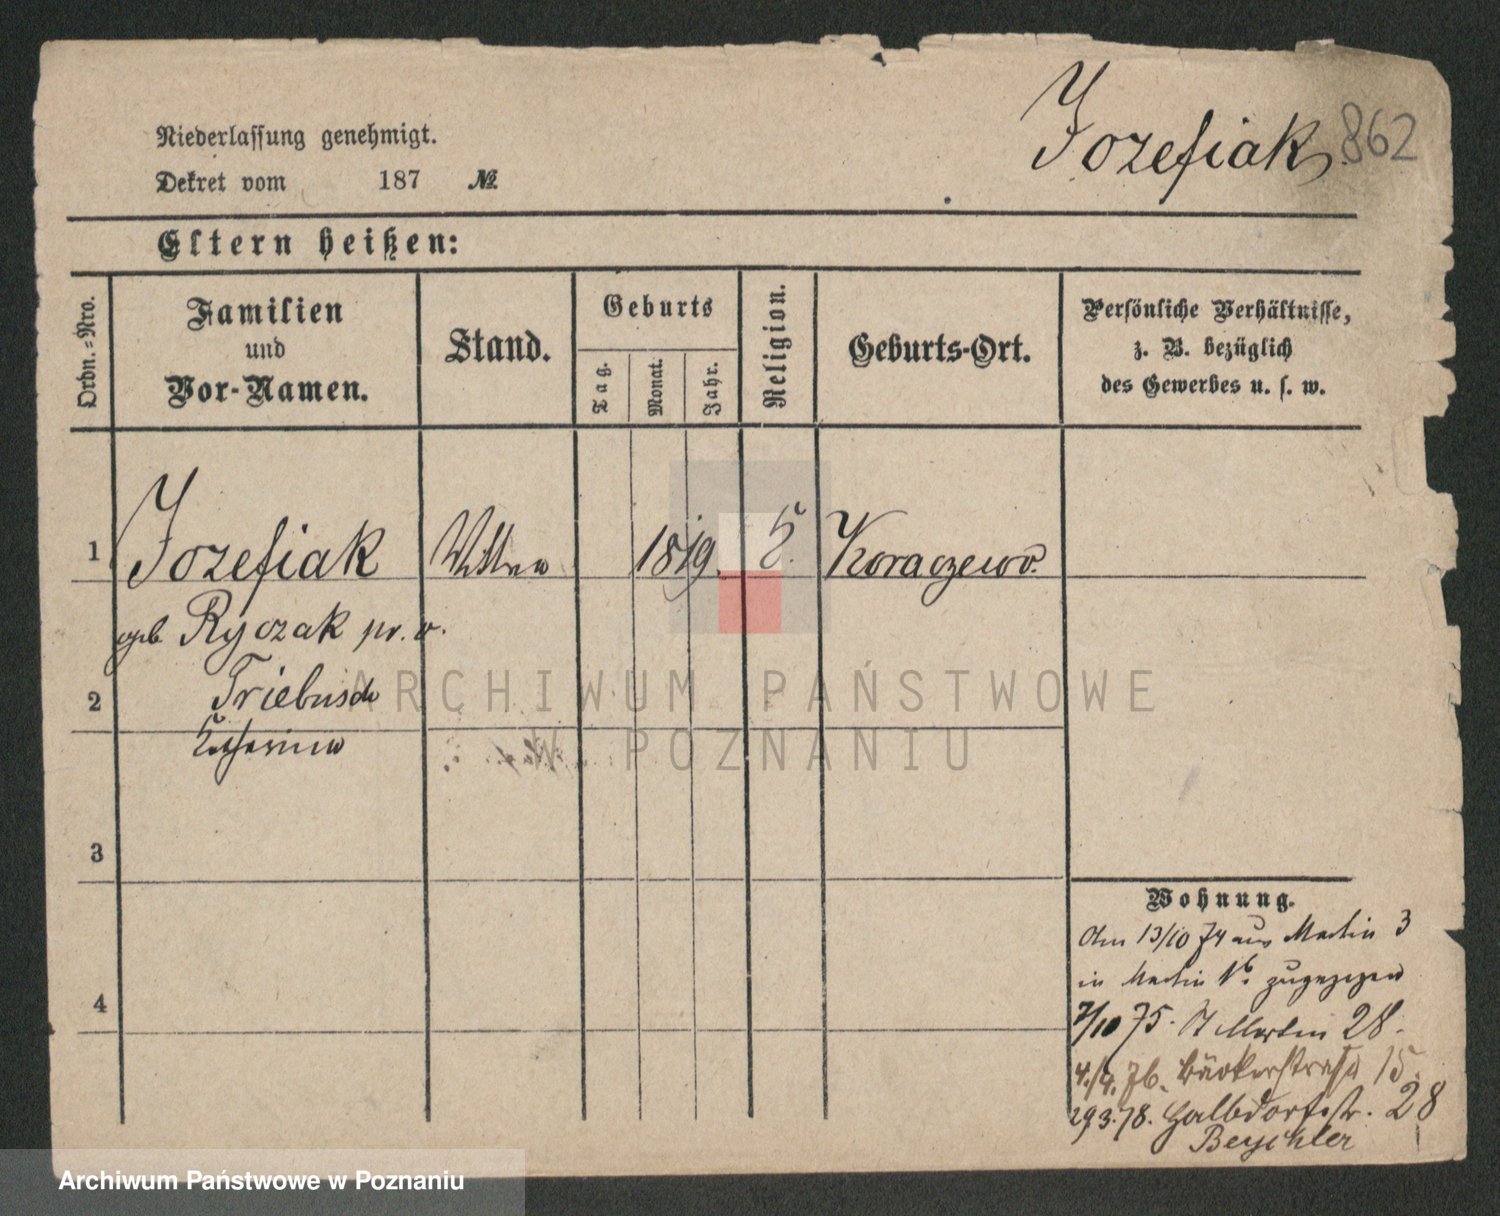 Jozefiak 862
Niederlassung genehmigt.
Dekret vom 187 №
Eltern heißen:
Ordn.-Nro.
Familien
und
Vor-Namen.
Stand.
Geburts
Tag.
Monat.
Jahr.
Religion.
Geburts-Ort.
Persönliche Verhältnisse,
z. B. bezüglich
des Gewerbes u. s. w.
1 Jozefiak 1819. K. Koraczewo.
geb Ryczak pr. v.
2 Triebusch
Katharina
3
4
Wohnung.
Den 13/10 74 aus Martin 3
in Martin zugezogen
7/10 75. St Martin 28.
4./4. 76. Bäckerstraße 15.
29 3. 78. Halbdorfstr. 28
Beyschler
ARCHIWUM PAŃSTWOWE
W POZNANIU
Archiwum Państwowe w Poznaniu